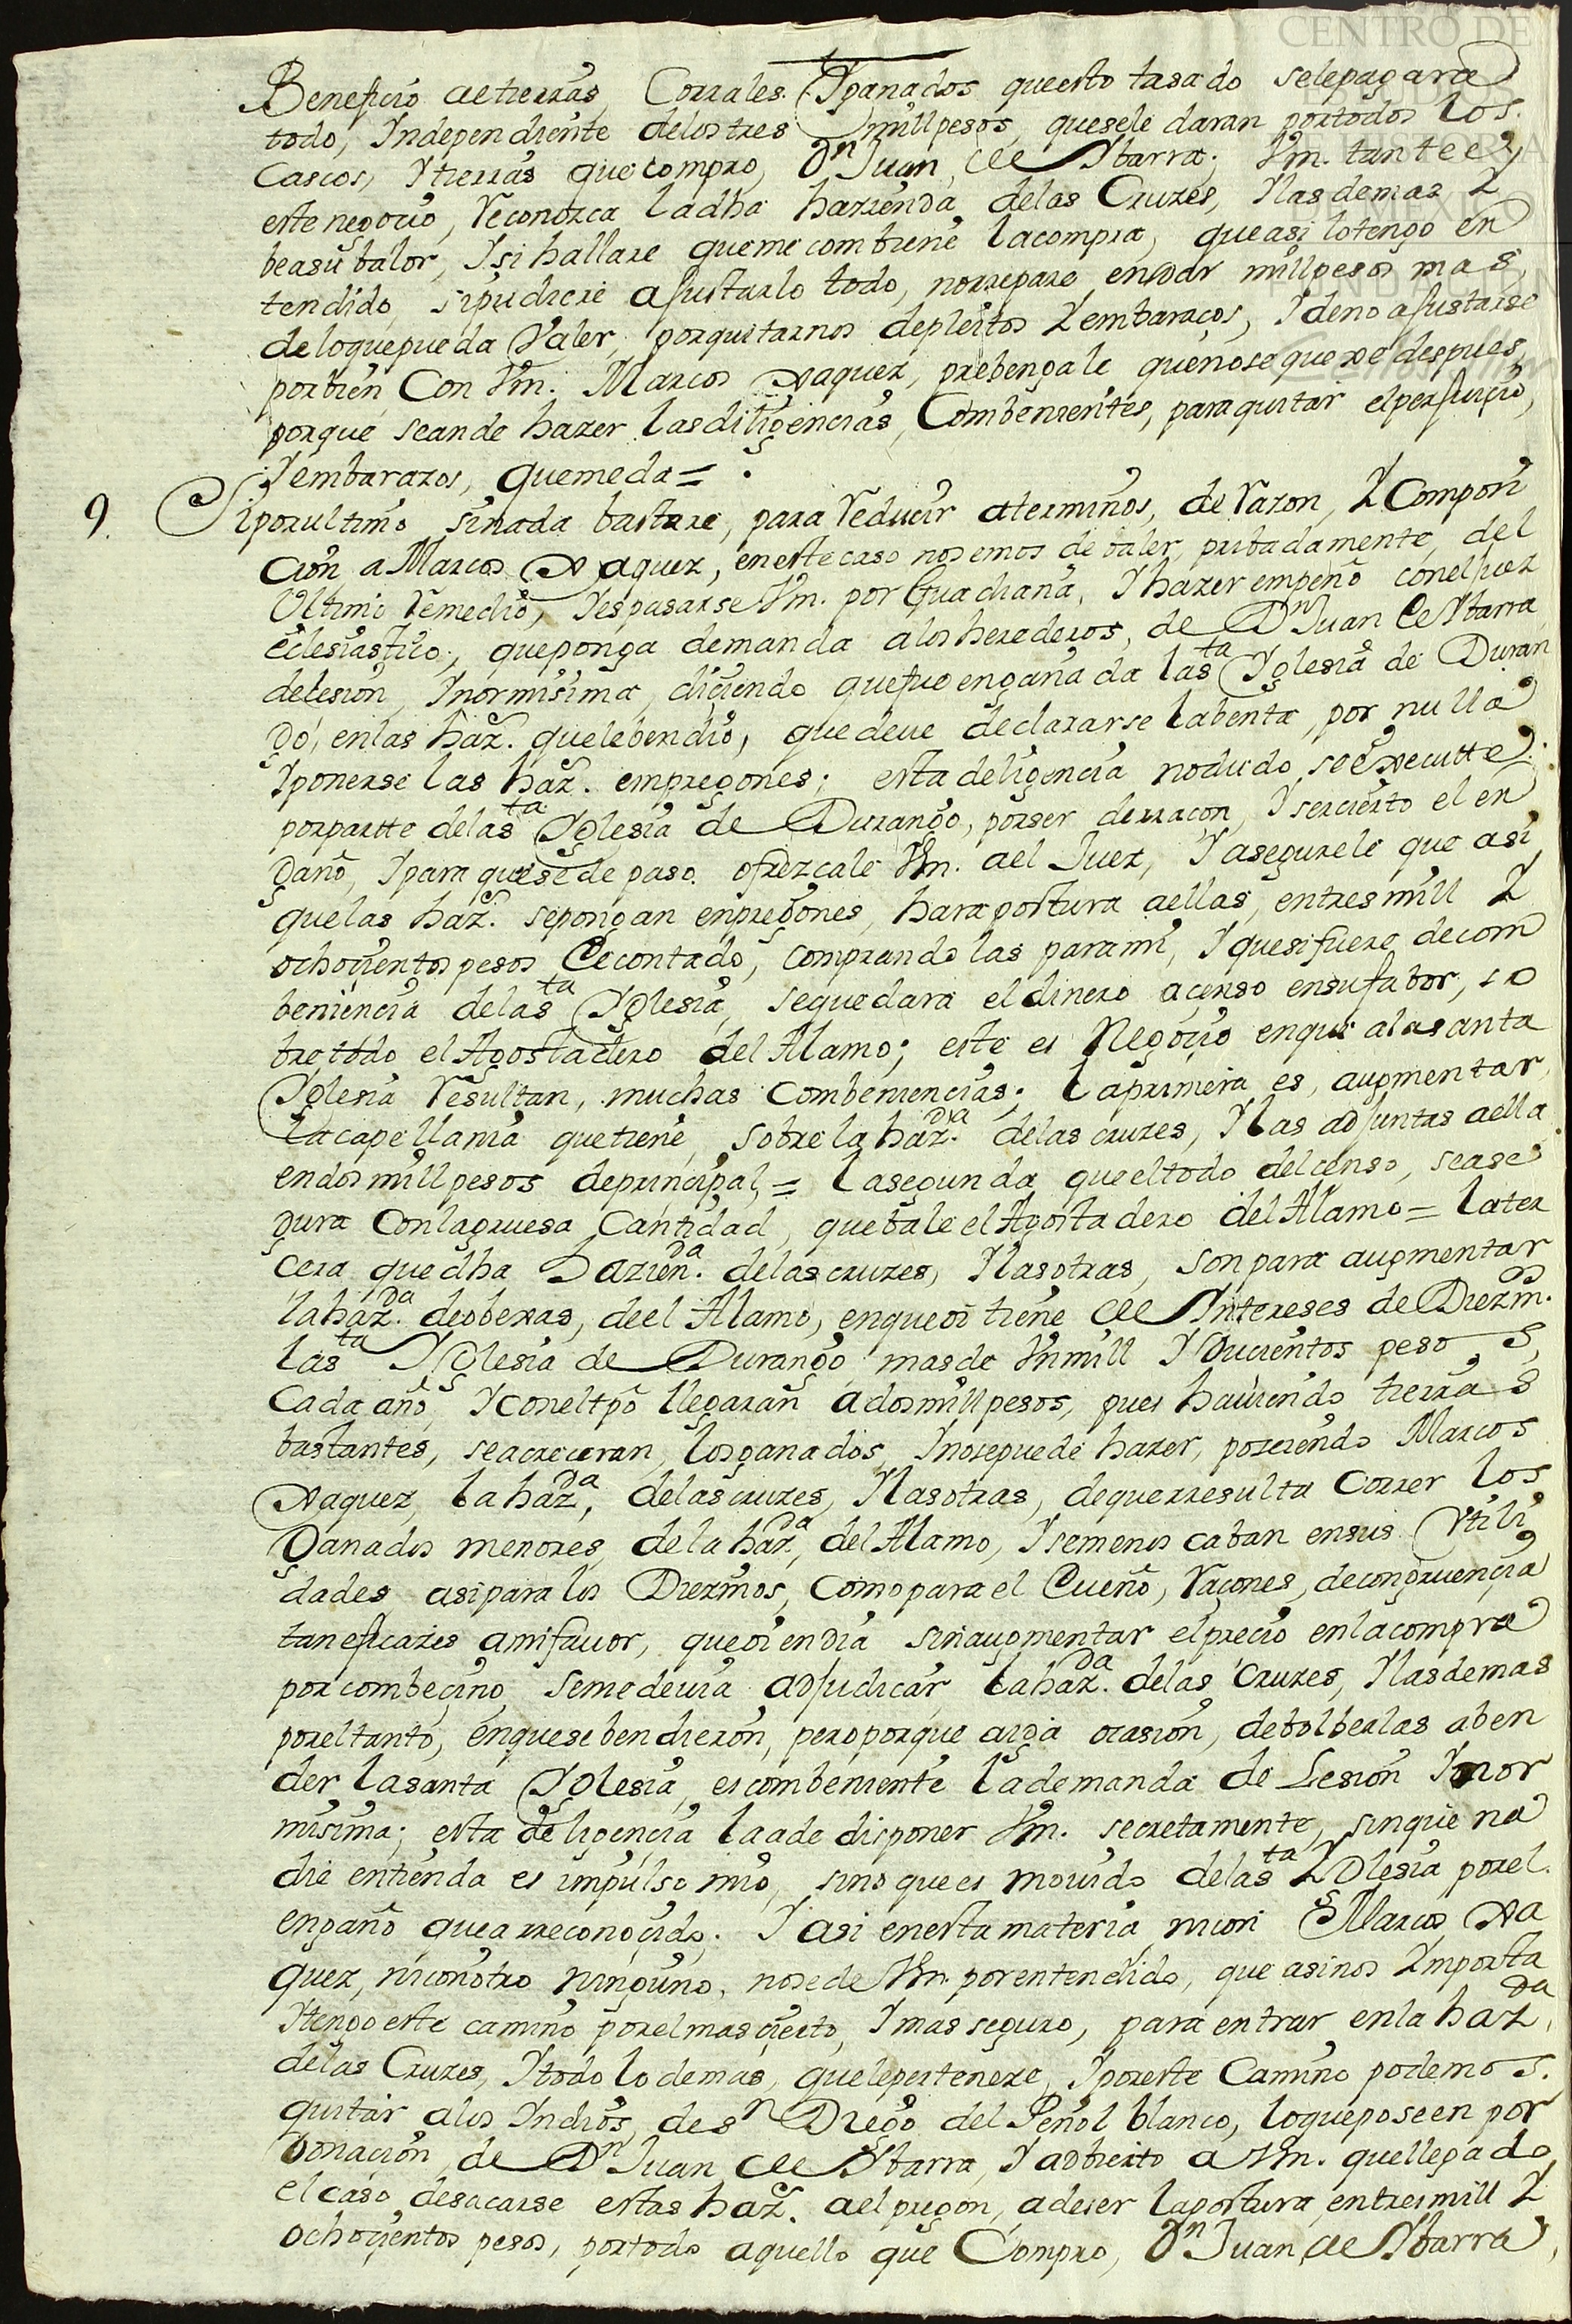 CENTRO DE
ESTUDIOS
DE HISTORIA
DE MEXICO
FUNDACIÓN
Carlos Slim
Beneficio de tierras, Corrales. Yganados questo tasado selepagara
todo, Independiente delostres millpesos, quesele daran portodos los.
Cascos, Ytierras que compro, Dn Juan, de Ybarra. Vm. tantee
este negocio, Reconozca ladha hazienda delas Cruzes, Ylasdemas Y
beasu balor, Ysi hallare quemecombiene lacompra, queasi lotengo en
tendido, sipudiere ajustarlo todo, norrepare endar millpesos mas,
deloquepueda Valer, porquitarnos depleitos Yembaraços, Ydeno ajustarse
porbien Con Vm. Marcos Xaquez, prebengale quenosequexe despues,
porque seande hazer lasdiligencias, Combenientes, paraquitar elperjuiçio,
Yembarazos, quemeda=
9. Siporultimo sinada bastare, para Reducir aterminos, de Razon, YComposi
cion, a Marcos Xaquez, eneste caso nosemos debaler, pribadamente, del
Ultimo Remedio, Yespasarse Vm. por Guadiana, Yhazer empeño conelJuez
eclesiastico, queponga demanda alosherederos, de Dn Juan de Ybarra
delesion, Inormisima, diciendo quefue engañada lasta Yglesia de Duran
go, enlas haz. quelebendio, quedeue declararse labenta, por nulla
Yponerse las haz. empregones; esta deligencia nodudo seexecutte
porpartte delasta Yglesia de Durango, porser derraçon, Yserçierto el en
gaño, Ypara quesede paso. ofrezcale Vm. ael Juez, Yasegurele que asi
quelas haz. sepongan enpregones, harapostura aellas, entresmill Y
ochoçientos pesos Decontado, comprandolas parami, Yquesifuere decom
beniencia delasta Yglesia, sequedara eldinero açenso ensufabor, so
bretodo el Agostadero del Alamo; este es Negoçio enque alasanta
Yglesia Resultan, muchas Combeniencias; laprimera es, augmentar
lacapellania quetiene, sobrelahazda. delascruzes, Ylas adjuntas aella
endosmillpesos deprincipal,= lasegunda queeltodo delcenso, sease
gura Conlagruesa Cantidad, quebale elAgostadero delAlamo= later
cera quedha Hazienda. delascruzes, Ylasotras, sonpara augmentar
lahazda. deobexas, deel Alamo, enqueoi tiene de Yntereses de Diezm.
lasta Yglesia de Durango masde Vnmill Yducientos pesos,
Cada año, Yconeltpo llegaran adosmillpesos, pues hauiendo tierras
bastantes, seacreceran, losganados, Ynosepuede hazer, poseiendo Marcos
Xaquez, lahazda, delascruzes, Ylasotras, dequerresulta Correr los
Ganados menores, delahazda, delAlamo, Ysemenoscaban ensus Vtili
dades, asiparalos Diezmos, Comoparael Dueño, Raçones, decongruencia
taneficazes amifauor, queoiendia sinaugmentar elprecio enlacompra
porcombeçino, semedeuia adjudicar lahazda. delas Cruzes, Ylasdemas
poreltanto, enquesebendieron, peroporque aiga ocasion, debolberlas aben
der lasanta Yglesia, escombeniente lademanda de Lesion Ynor
misima; esta deligencia laade disponer Vm. secretamente, sinque na
die entienda es impulso mio, sinoquees mouido delasta Yglesia porel.
engaño quearreconoçido. Yasi enesta materia, nicon Marcos Xa
quez, niconotro ninguno, nosede Vm. porentendido, que asinos Ymporta
Ytengoeste camino porelmasçierto, Ymasseguro, para entrar enla hazda.
delas Cruzes, Ytodo lodemas, quelepertenece, Yporeste Camino podemos.
quitar alos Yndios, desn Diego del Peñol blanco, loqueposeen por
donaçion, de Dn Juan de Ybarra, Yadbierto a Vm. quellegado
elcaso desacarse estas haz. aelpregon, adeser lapostura, entresmill Y
ochoçientos pesos, portodo aquello que Compro, Dn Juan de Ybarra,